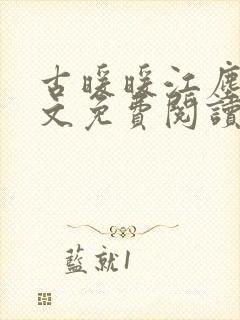 古暖暖江塵
文免費閱讀
藍就1